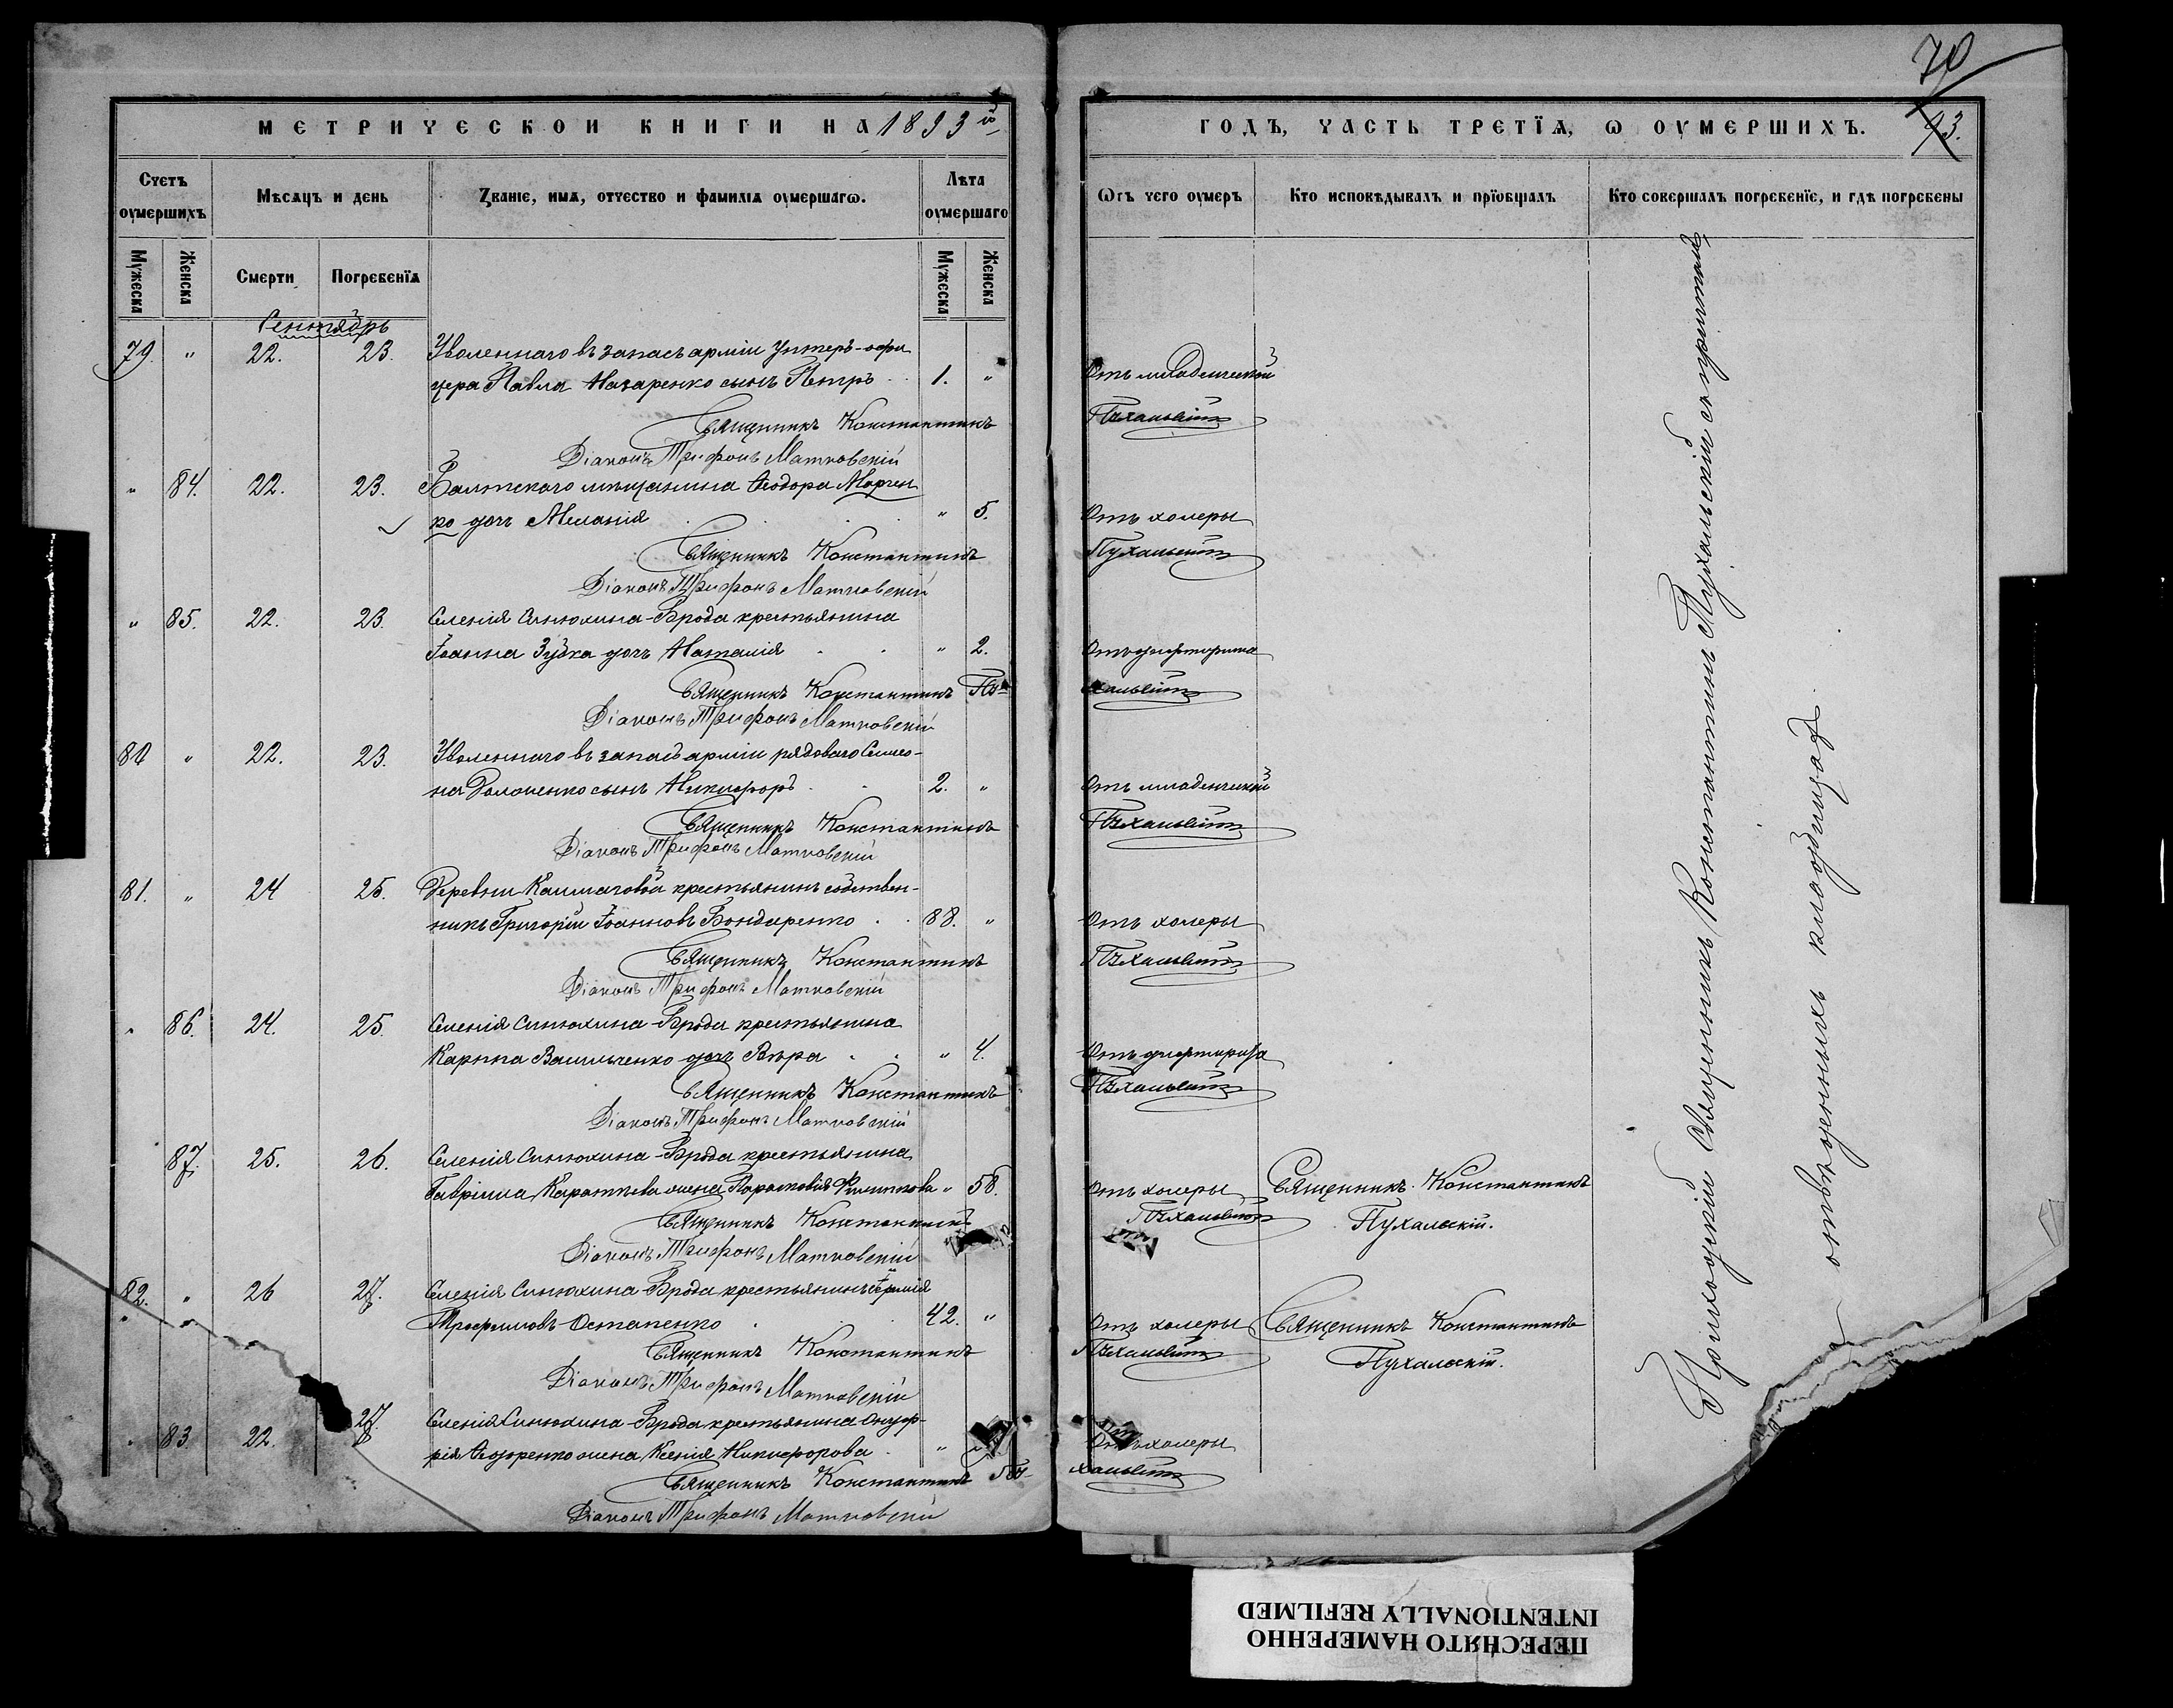 70
МЕТРИЧЕСКОЙ КНИГИ НА 1893 й
ГОДЪ, ЧАСТЬ ТРЕТЇѦ, Ѡ ОУМЕРШИХЪ. 43.
Счетъ оумершихъ
Мѣсѧцъ и день
Званїе, имѧ, отчество и фамилїѧ оумершагѡ.
Лѣта оумершаго
Ѡтъ чего оумеръ
Кто исповѣдывалъ и прїобщалъ
Кто совершалъ погребенїе, и гдѣ погребены
Мужеска
Женска
Смерти
Погребенїѧ
Мужеска
Женска
Сентябрь
79. " 22. 23. Уволеннаго въ запасъ арміи унтеръ-офи
цера Павла Назаренко сынъ Петръ 1. " Отъ младенческой
Священникъ Константинъ Пухальскій
Діаконъ Трифонъ Матковскій
" 84. 22. 23. Балтскаго мѣщанина Ѳеодора Марчен
ко дочь Меланія " 5. Отъ холеры
Священникъ Константинъ Пухальскій
Діаконъ Трифонъ Матковскій
" 85. 22. 23. Селенія Синюхина-Брода крестьянина
Іоанна Зубка дочь Наталія " 2. Отъ дифтерита
Священникъ Константинъ Пухальскій
Діаконъ Трифонъ Матковскій
80 " 22. 23. Уволеннаго въ запасъ арміи рядоваго Семео-
на сынъ Никифоръ 2. " Отъ младенческой
Священникъ Константинъ Пухальскій
Діаконъ Трифонъ Матковскій
81. " 24 25. Деревни крестьянинъ собствен-
никъ Григорій Іоанновъ Бондаренко 88. " Отъ холеры
Священникъ Константинъ Пухальскій
Діаконъ Трифонъ Матковскій
" 86. 24. 25. Селенія Синюхина-Брода крестьянина
Карпа Васильченко дочь Вѣра " 4. Отъ дифтерита
Священникъ Константинъ Пухальскій
Діаконъ Трифонъ Матковскій
87. 25. 26. Селенія Синюхина-Брода крестьянина
Гавріила жена Параскевія Филиппова " 58. Отъ холеры Священникъ Константинъ
Священникъ Константинъ Пухальскій Пухальскій.
Діаконъ Трифонъ Матковскій
82. " 26 27. Селенія Синюхина-Брода крестьянинъ
Трофимовъ Остапенко 42. " Отъ холеры Священникъ Константинъ
Священникъ Константинъ Пухальскій Пухальскій.
Діаконъ Трифонъ Матковскій
" 83 22. 27. Селенія Синюхина-Брода крестьянина Онуф-
рія жена Ксенія Никифорова " Отъ холеры
Священникъ Константинъ Пухальскій
Діаконъ Трифонъ Матковскій
Приходскій Священникъ Константинъ Пухальскій съ причтомъ,
на отведенныхъ кладбищахъ.
ПЕРЕСНЯТО НАМЕРЕННО
INTENTIONALLY REFILMED